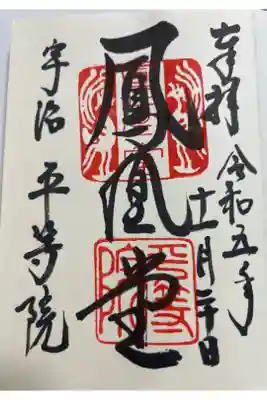 奉拝
令和五年
十一月二十日
鳳凰堂
宇治 平等院